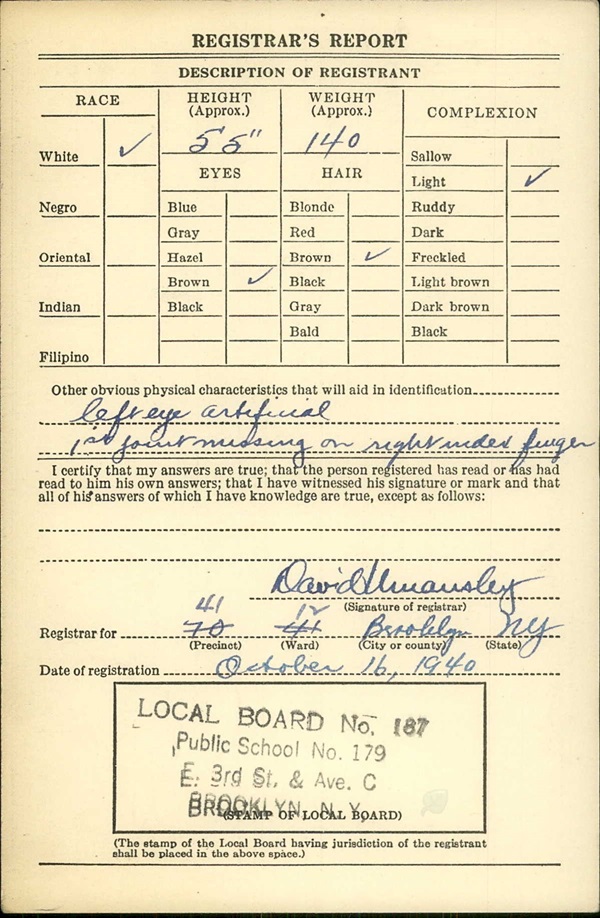 REGISTRAR'S REPORT
DESCRIPTION OF REGISTRANT
RACE
HEIGHT
(Approx.)
WEIGHT
(Approx.)
COMPLEXION
5'5"
140
White ✓
Negro
Oriental
Indian
Filipino
EYES
Blue
Gray
Hazel
Brown ✓
Black
HAIR
Blonde
Red
Brown ✓
Black
Gray
Bald
Sallow
Light ✓
Ruddy
Dark
Freckled
Light brown
Dark brown
Black
Other obvious physical characteristics that will aid in identification
left eye artificial
1st joint missing on right index finger
I certify that my answers are true; that the person registered has read or has had
read to him his own answers; that I have witnessed his signature or mark and that
all of his answers of which I have knowledge are true, except as follows:
David Umansley
(Signature of registrar)
41 12
Registrar for 70 41 Brooklyn NY
(Precinct) (Ward) (City or county) (State)
Date of registration October 16, 1940
LOCAL BOARD No. 187
Public School No. 179
E. 3rd St. & Ave. C
BROOKLYN, N. Y.
(STAMP OF LOCAL BOARD)
(The stamp of the Local Board having jurisdiction of the registrant
shall be placed in the above space.)